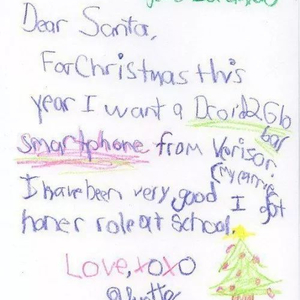 Dear Santa,
For Christmas this
year I want a Droid2Gb
bar
smartphone from Verison
(my carrier)
I have been very good I got
honer role at school.
Love, xoxo